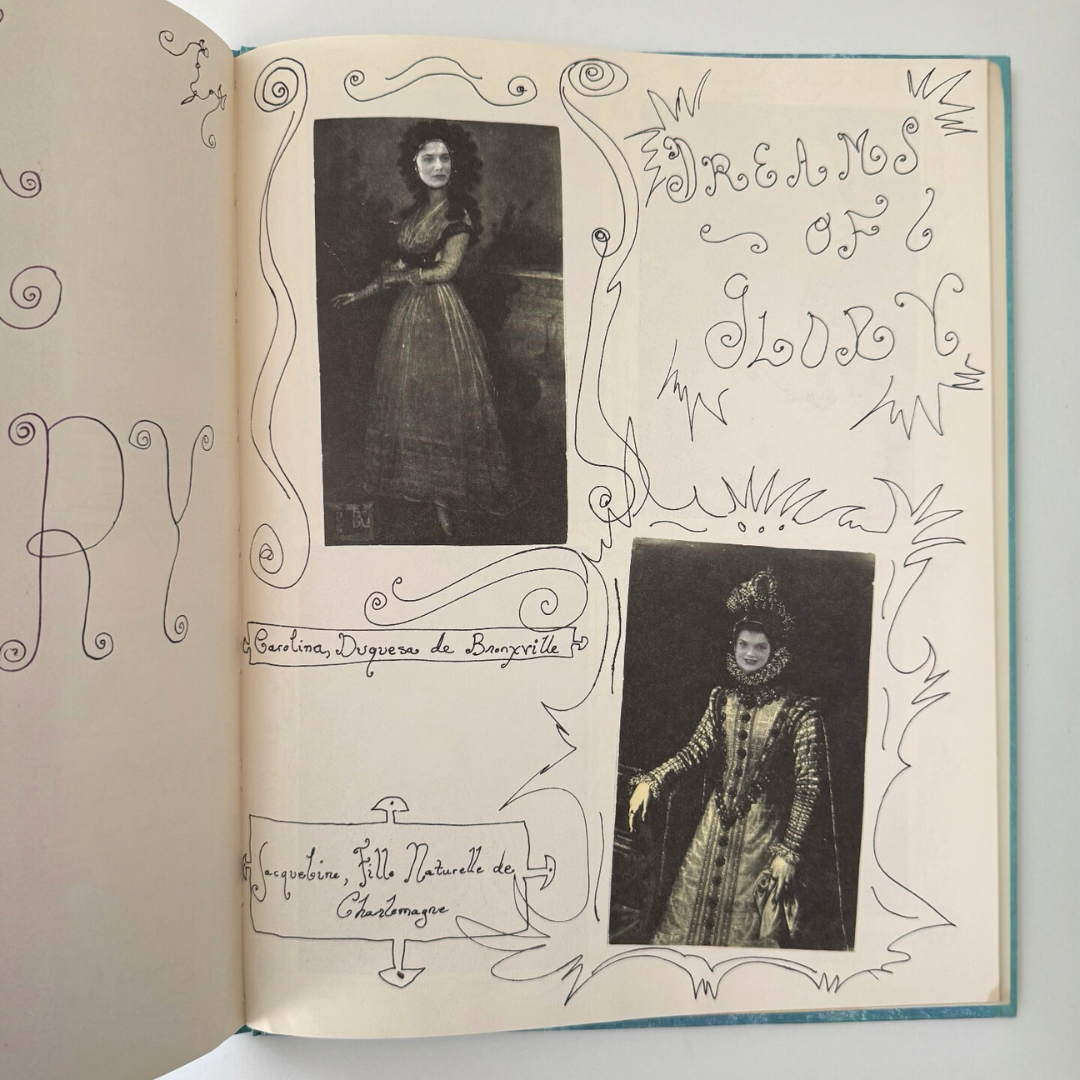 RY
DREAMS
OF
GLORY
Carolina, Duquesa de Bronxville
Jacqueline, Fille Naturelle de
Charlemagne